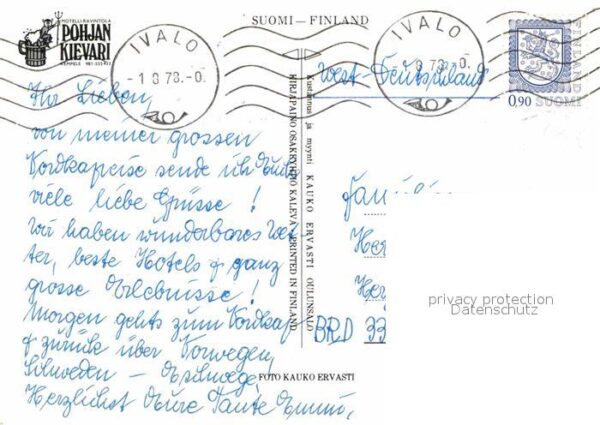 HOTELLI-RAVINTOLA
POHJAN
KIEVARI
KEMPELE 981-515422
SUOMI—FINLAND
IVALO
-1 8 78.-0.
IVALO
8 78.-0.
FINLAND
0,90 SUOMI
West-Deutschland
Ihr Lieben,
von meiner grossen
Nordkapreise sende ich Euch
viele liebe Grüsse!
Wir haben wunderbares Wet-
ter, beste Hotels & ganz
grosse Erlebnisse!
Morgen gehts zum Nordkap
& zurück über Norwegen,
Schweden –
Herzlichst Eure Tante Emmi,
Kustannus ja myynti KAUKO ERVASTI OULUNSALO
KIRJAPAINO OSAKEYHTIÖ KALEVA PRINTED IN FINLAND
FOTO KAUKO ERVASTI
Fam
Her
Her
BRD 33
privacy protection
Datenschutz